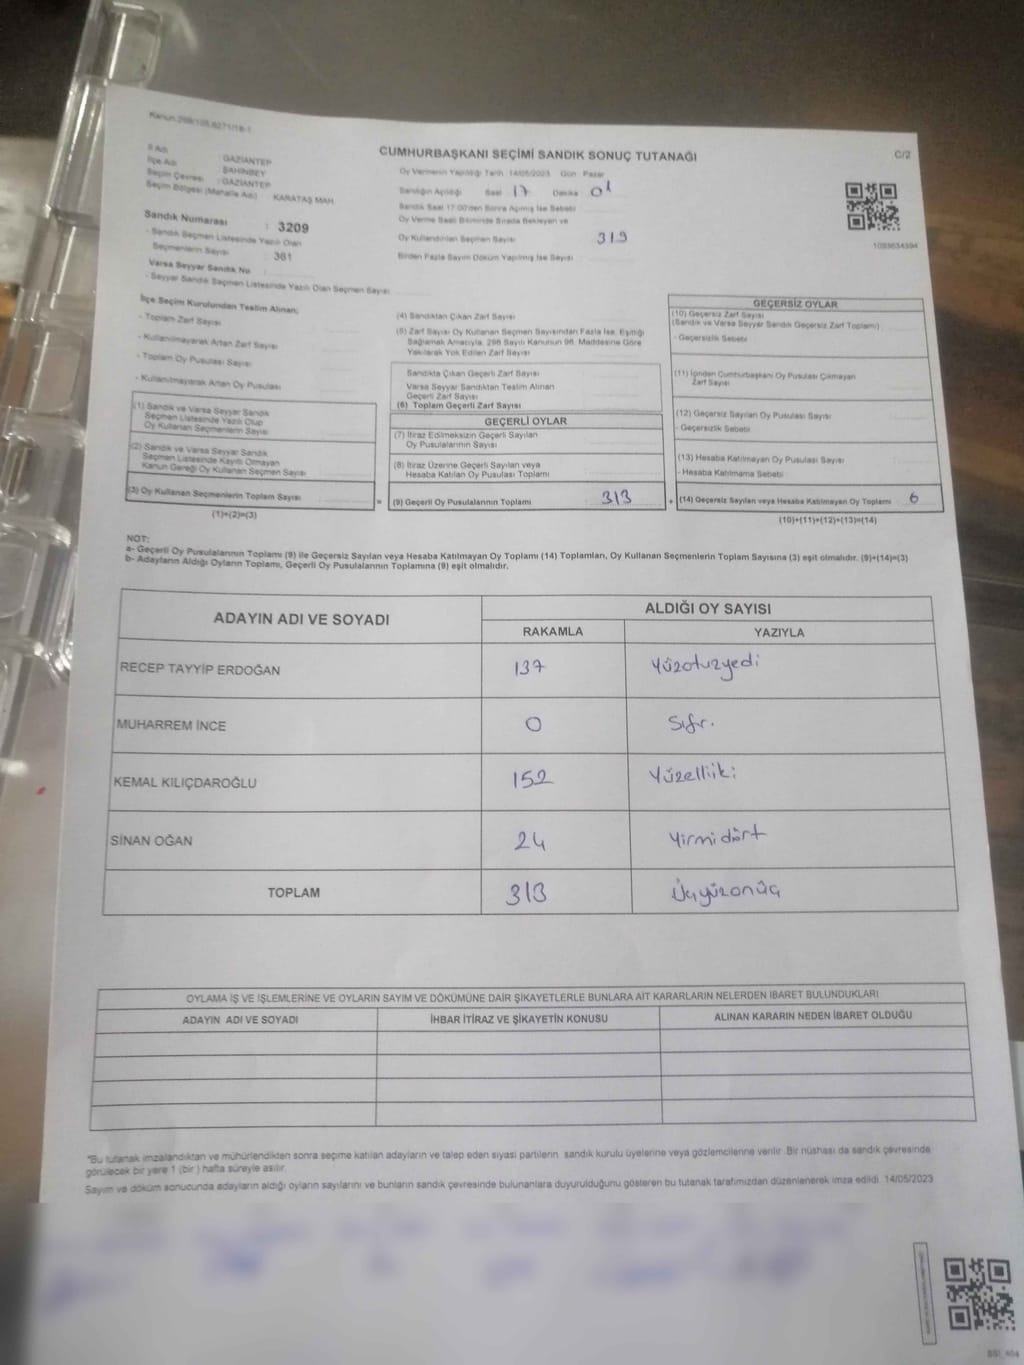 Kanun:298/105,6271/18-1
CUMHURBAŞKANI SEÇİMİ SANDIK SONUÇ TUTANAĞI
C/2
İl Adı : GAZİANTEP
İlçe Adı : ŞAHİNBEY
Seçim Çevresi : GAZİANTEP
Seçim Bölgesi (Mahalle Adı) : KARATAŞ MAH.
Sandık Numarası : 3209
- Sandık Seçmen Listesinde Yazılı Olan
Seçmenlerin Sayısı : 361
Varsa Seyyar Sandık No
- Seyyar Sandık Seçmen Listesinde Yazılı Olan Seçmen Sayısı
Oy Vermenin Yapıldığı Tarih 14/05/2023 Gün Pazar
Sandığın Açıldığı Saat 17 Dakika 01
Sandık Saat 17:00'den Sonra Açılmış İse Sebebi
Oy Verme Saati Bitiminde Sırada Bekleyen ve
Oy Kullandırılan Seçmen Sayısı 319
Birden Fazla Sayım Döküm Yapılmış İse Sayısı
1093634394
İlçe Seçim Kurulundan Teslim Alınan;
- Toplam Zarf Sayısı
- Kullanılmayarak Artan Zarf Sayısı
- Toplam Oy Pusulası Sayısı
- Kullanılmayarak Artan Oy Pusulası
(1) Sandık ve Varsa Seyyar Sandık
Seçmen Listesinde Yazılı Olup
Oy Kullanan Seçmenlerin Sayısı
(2) Sandık ve Varsa Seyyar Sandık
Seçmen Listesinde Kayıtlı Olmayan
Kanun Gereği Oy Kullanan Seçmen Sayısı
(3) Oy Kullanan Seçmenlerin Toplam Sayısı
(1)+(2)=(3)
(4) Sandıktan Çıkan Zarf Sayısı
(5) Zarf Sayısı Oy Kullanan Seçmen Sayısından Fazla İse, Eşitliği
Sağlamak Amacıyla, 298 Sayılı Kanunun 98. Maddesine Göre
Yakılarak Yok Edilen Zarf Sayısı
Sandıkta Çıkan Geçerli Zarf Sayısı
Varsa Seyyar Sandıktan Teslim Alınan
Geçerli Zarf Sayısı
(6) Toplam Geçerli Zarf Sayısı
GEÇERLİ OYLAR
(7) İtiraz Edilmeksizin Geçerli Sayılan
Oy Pusulalarının Sayısı
(8) İtiraz Üzerine Geçerli Sayılan veya
Hesaba Katılan Oy Pusulası Toplamı
= (9) Geçerli Oy Pusulalarının Toplamı 313
GEÇERSİZ OYLAR
(10) Geçersiz Zarf Sayısı
(Sandık ve Varsa Seyyar Sandık Geçersiz Zarf Toplamı)
- Geçersizlik Sebebi
(11) İçinden Cumhurbaşkanı Oy Pusulası Çıkmayan
Zarf Sayısı
(12) Geçersiz Sayılan Oy Pusulası Sayısı
- Geçersizlik Sebebi
(13) Hesaba Katılmayan Oy Pusulası Sayısı
- Hesaba Katılmama Sebebi
+ (14) Geçersiz Sayılan veya Hesaba Katılmayan Oy Toplamı 6
(10)+(11)+(12)+(13)=(14)
NOT:
a- Geçerli Oy Pusulalarının Toplamı (9) ile Geçersiz Sayılan veya Hesaba Katılmayan Oy Toplamı (14) Toplamları, Oy Kullanan Seçmenlerin Toplam Sayısına (3) eşit olmalıdır. (9)+(14)=(3)
b- Adayların Aldığı Oyların Toplamı, Geçerli Oy Pusulalarının Toplamına (9) eşit olmalıdır.
ADAYIN ADI VE SOYADI ALDIĞI OY SAYISI
RAKAMLA YAZIYLA
RECEP TAYYİP ERDOĞAN 137 Yüzotuzyedi
MUHARREM İNCE 0 Sıfır.
KEMAL KILIÇDAROĞLU 152 Yüzelliiki
SİNAN OĞAN 24 Yirmidört
TOPLAM 313 Üçyüzonüç
OYLAMA İŞ VE İŞLEMLERİNE VE OYLARIN SAYIM VE DÖKÜMÜNE DAİR ŞİKAYETLERLE BUNLARA AİT KARARLARIN NELERDEN İBARET BULUNDUKLARI
ADAYIN ADI VE SOYADI İHBAR İTİRAZ VE ŞİKAYETİN KONUSU ALINAN KARARIN NEDEN İBARET OLDUĞU
*Bu tutanak imzalandıktan ve mühürlendikten sonra seçime katılan adayların ve talep eden siyasi partilerin sandık kurulu üyelerine veya gözlemcilerine verilir. Bir nüshası da sandık çevresinde
görülecek bir yere 1 (bir) hafta süreyle asılır.
Sayım ve döküm sonucunda adayların aldığı oyların sayılarını ve bunların sandık çevresinde bulunanlara duyurulduğunu gösteren bu tutanak tarafımızdan düzenlenerek imza edildi. 14/05/2023